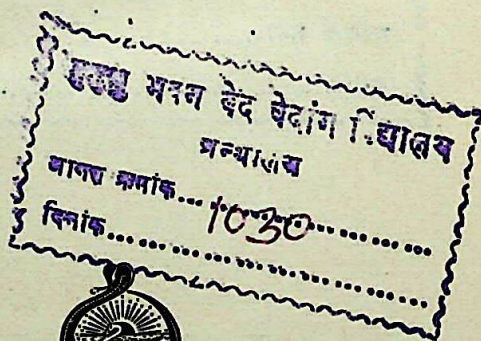 भवन वेद वेदांग विद्यालय
ग्रन्थालय
आगत क्रमांक... 1030
दिनांक...